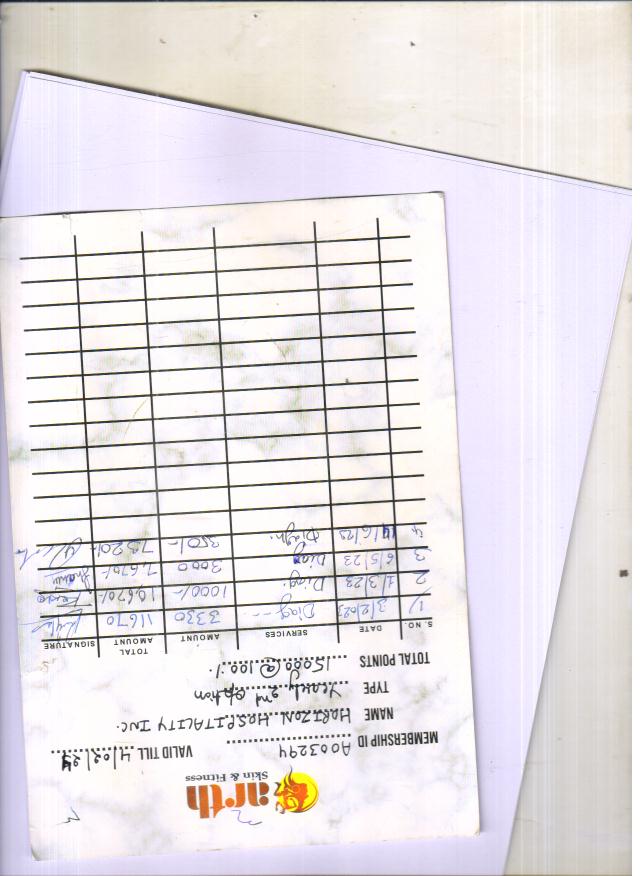 arth
Skin & Fitness
MEMBERSHIP ID A003294 VALID TILL 4/02/24
NAME HORIZON HOSPITALITY INC.
TYPE Yearly 2nd option
TOTAL POINTS 15000 @ 100%.
S. NO. DATE SERVICES AMOUNT TOTAL AMOUNT SIGNATURE
1/ 3/2/023 Diag-- 3330 11670
2 1/3/23 Diag. 1000/- 10,670/-
3 6/5/23 Diag 3000 7,670/-
4 14/6/23 Diag. 350/- 7320/-